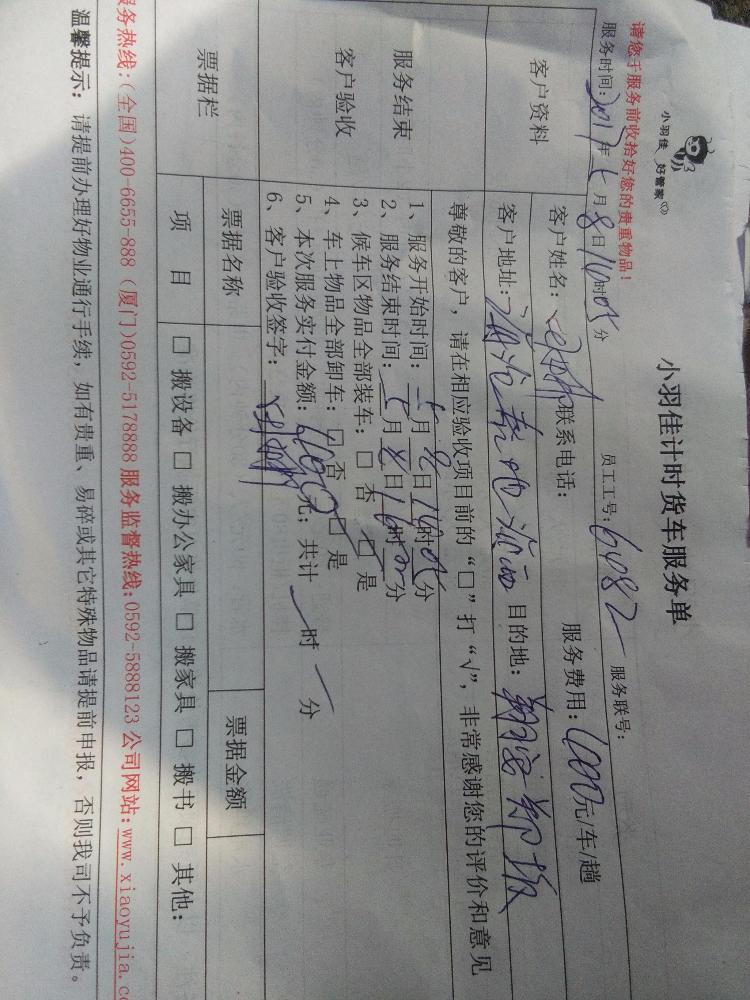 小羽佳 好管家
小羽佳计时货车服务单
请您于服务前收拾好您的贵重物品！
员工工号：6082 服务联号：
服务时间：2017年5月8日14时05分
客户资料
客户姓名： 联系电话： 服务费用：600元/车/趟
客户地址： 目的地：
尊敬的客户，请在相应验收项目前的“□”打“√”，非常感谢您的评价和意见
服务结束
客户验收
1、服务开始时间：5月8日14时05分
2、服务结束时间：5月8日16时 分
3、候车区物品全部装车：□ 否 □ 是
4、车上物品全部卸车：□ 否 □ 是
5、本次服务实付金额： 元；共计 时 分
6、客户验收签字：
票据栏
票据名称 票据金额
项 目 □ 搬设备 □ 搬办公家具 □ 搬家具 □ 搬书 □ 其他：
服务热线：(全国)400-6655-888 (厦门)0592-5178888 服务监督热线：0592-5888123 公司网站：www.xiaoyujia.co
温馨提示： 请提前办理好物业通行手续，如有贵重、易碎或其它特殊物品请提前申报，否则我司不予负责。